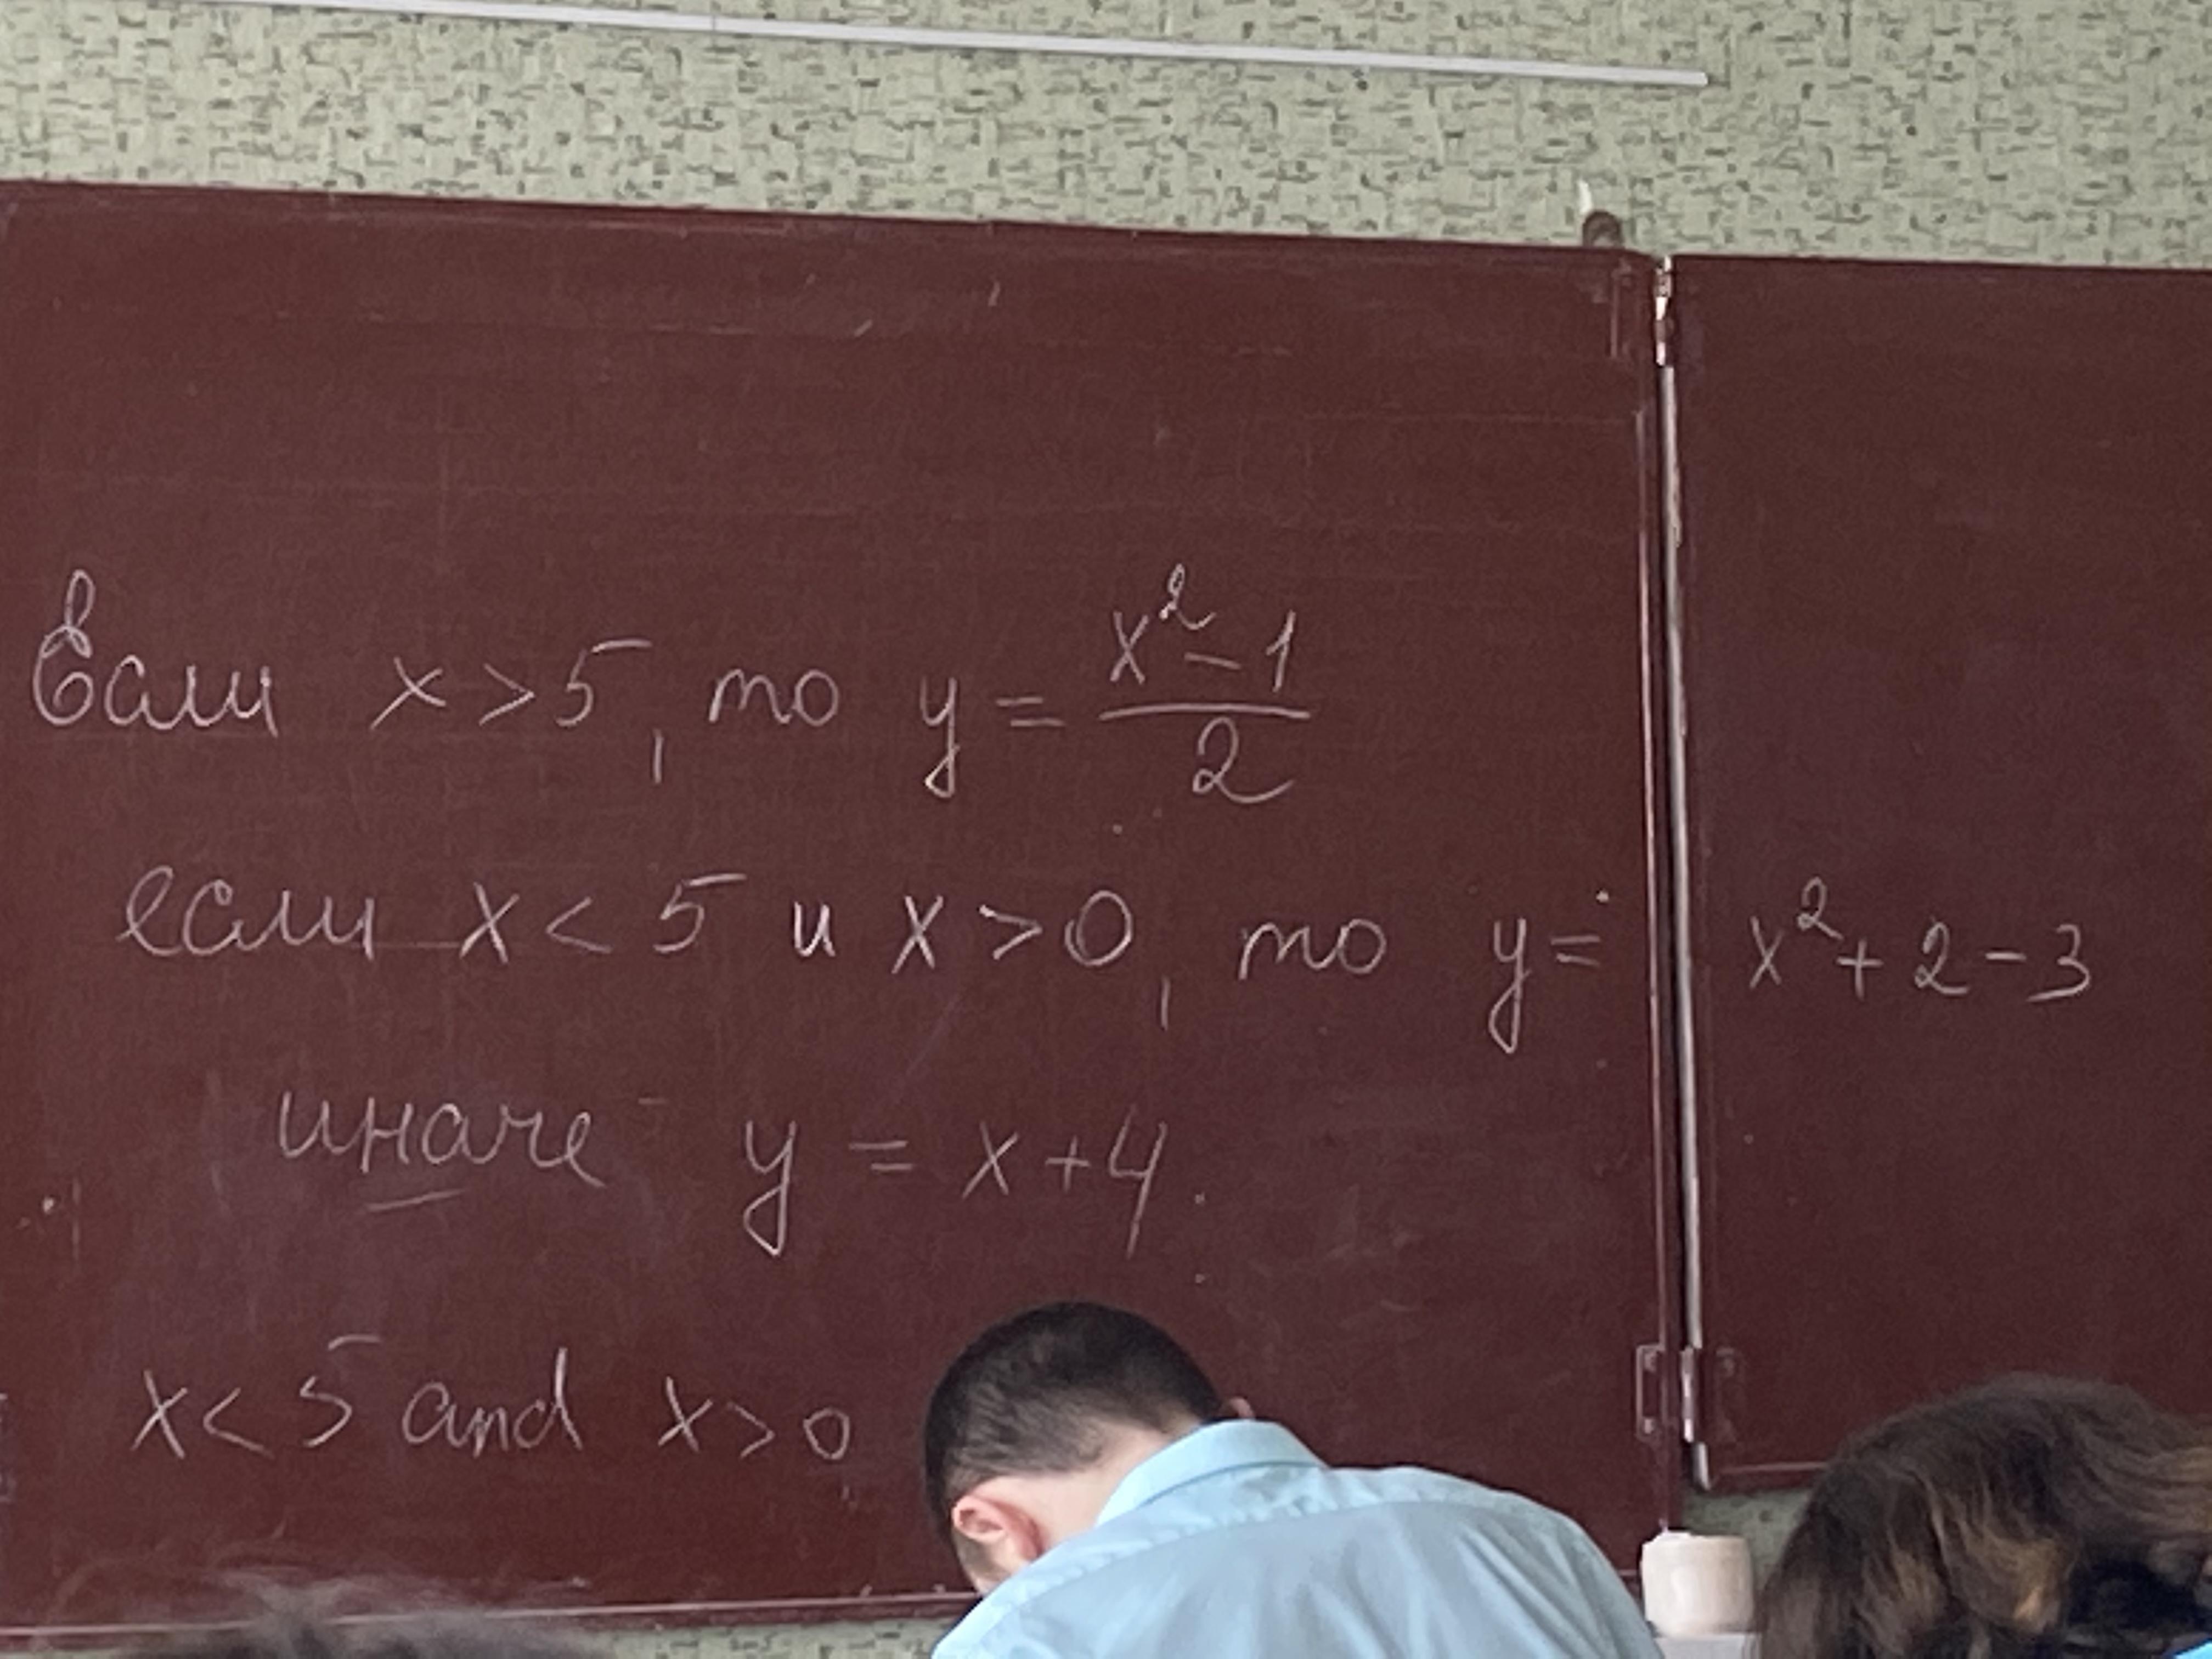 Если x > 5, то y = (x² - 1)/2
если x < 5 и x > 0, то y = x² + 2 - 3
иначе y = x + 4.
x < 5 and x > 0